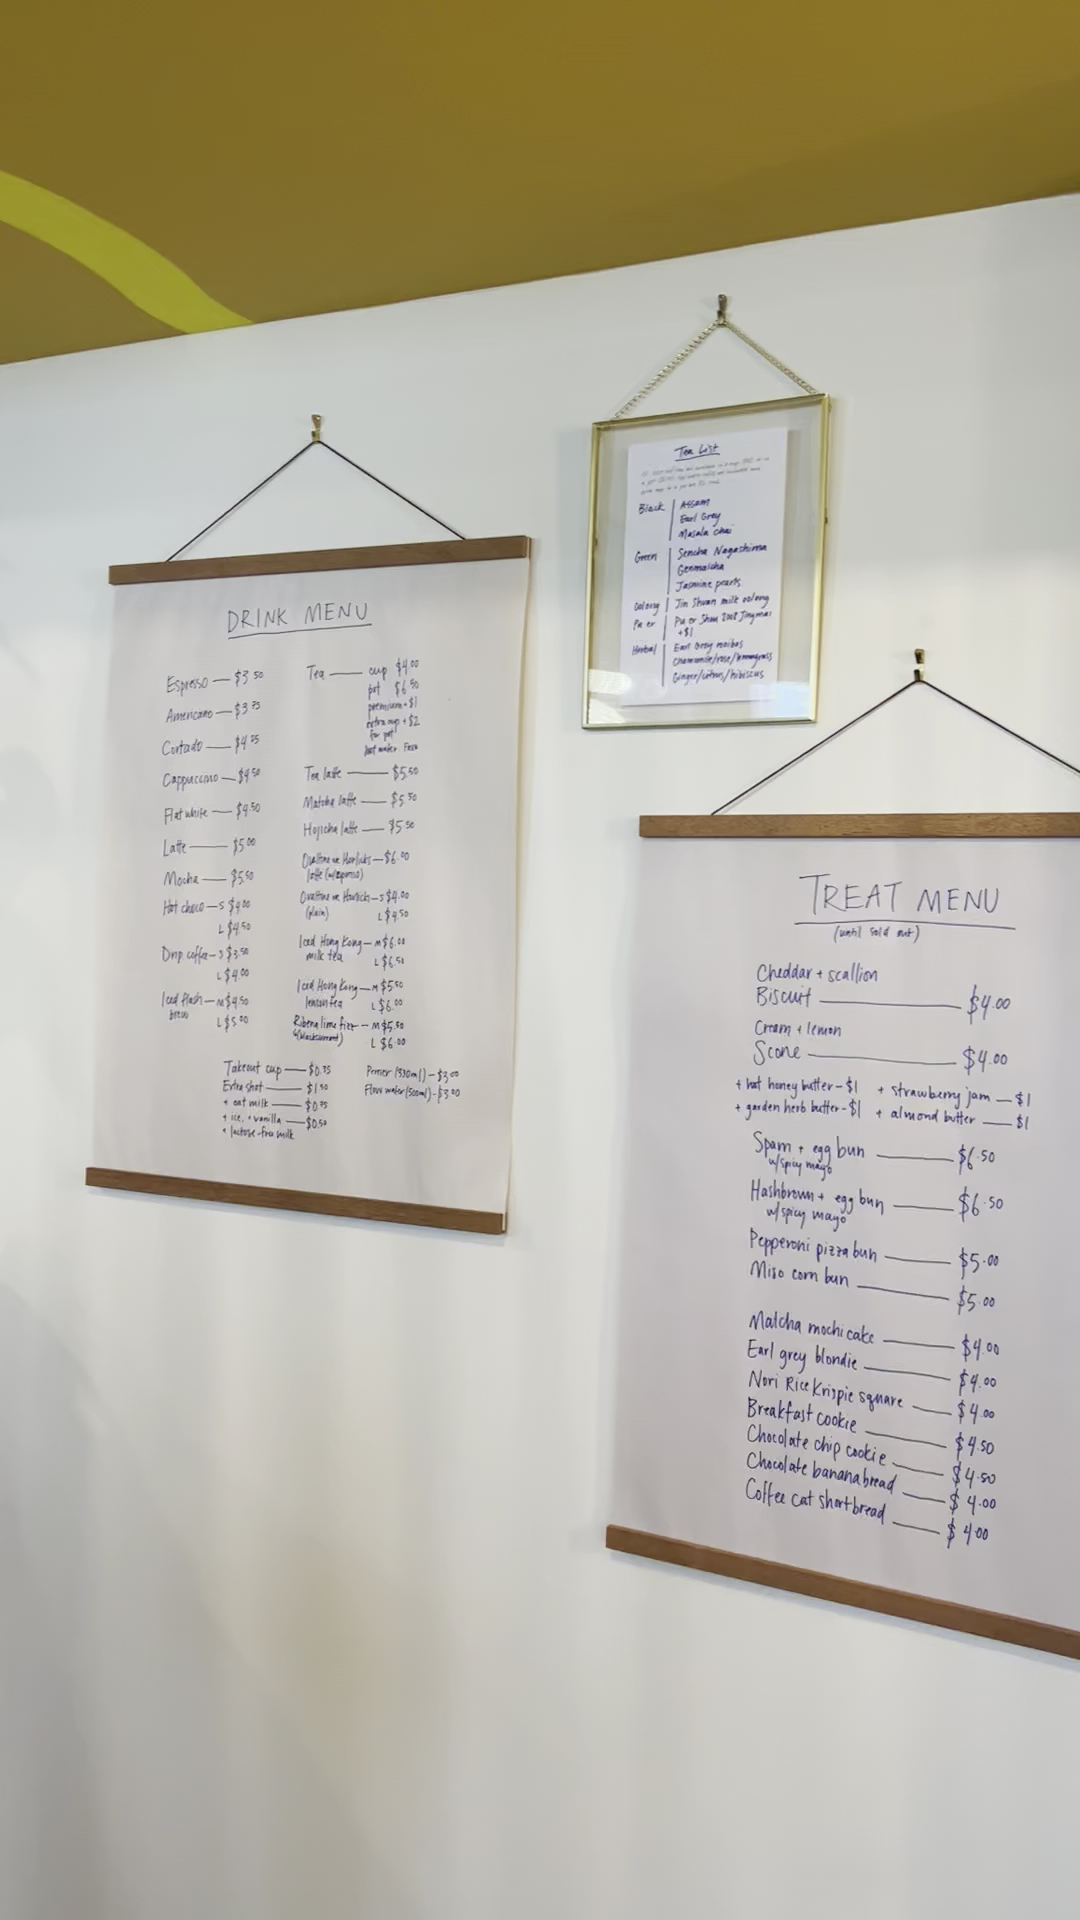 DRINK MENU
Espresso — $3.50
Americano — $3.75
Cortado — $4.25
Cappuccino — $4.50
Flat white — $4.50
Latte — $5.00
Mocha — $5.50
Hot choco — S $4.00
L $4.50
Drip coffee — S $3.50
L $4.00
Iced flash — M $4.50
brew L $5.00
Tea — cup $4.00
pot $6.50
premium + $1
extra cup + $2
for pot
hot water Free
Tea latte — $5.50
Matcha latte — $5.50
Hojicha latte — $5.50
Ovaltine or Horlicks — $6.00
latte (w/espresso)
Ovaltine or Horlick — S $4.00
(plain) L $4.50
Iced Hong Kong — M $6.00
milk tea L $6.50
Iced Hong Kong — M $5.50
lemon tea L $6.00
Ribena lime fizz — M $5.50
(blackcurrant) L $6.00
Takeout cup — $0.75
Extra shot — $1.50
+ oat milk — $0.75
+ ice, + vanilla — $0.50
+ lactose-free milk
Perrier (330ml) — $3.00
Flow water (500ml) — $3.00
Tea List
Black | Assam
Earl Grey
Masala chai
Green | Sencha Nagashima
Genmaicha
Jasmine pearls
Oolong | Jin Shuan milk oolong
Pu er | Pu er Shou 2008 Jingmai
+$1
Herbal | Earl Grey rooibos
Chamomile/rose/lemongrass
Ginger/citrus/hibiscus
TREAT MENU
(until sold out)
Cheddar + scallion
Biscuit — $4.00
Cream + lemon
Scone — $4.00
+ hot honey butter - $1 + strawberry jam — $1
+ garden herb butter - $1 + almond butter — $1
Spam + egg bun — $6.50
w/spicy mayo
Hashbrown + egg bun — $6.50
w/spicy mayo
Pepperoni pizza bun — $5.00
Miso corn bun — $5.00
Matcha mochi cake — $4.00
Earl grey blondie — $4.00
Nori Rice Krispie square — $4.00
Breakfast cookie — $4.50
Chocolate chip cookie — $4.50
Chocolate banana bread — $4.00
Coffee cat shortbread — $4.00